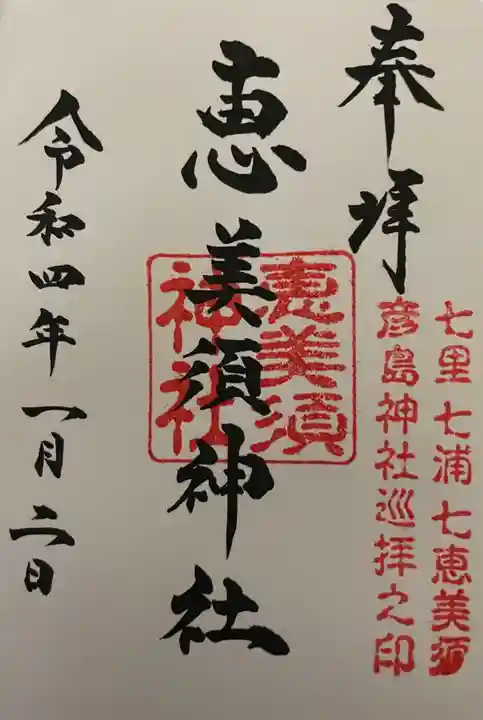 奉拝
七里七浦七恵美須
彦島神社巡拝之印
恵美須神社
恵美須
神社
令和四年一月二日